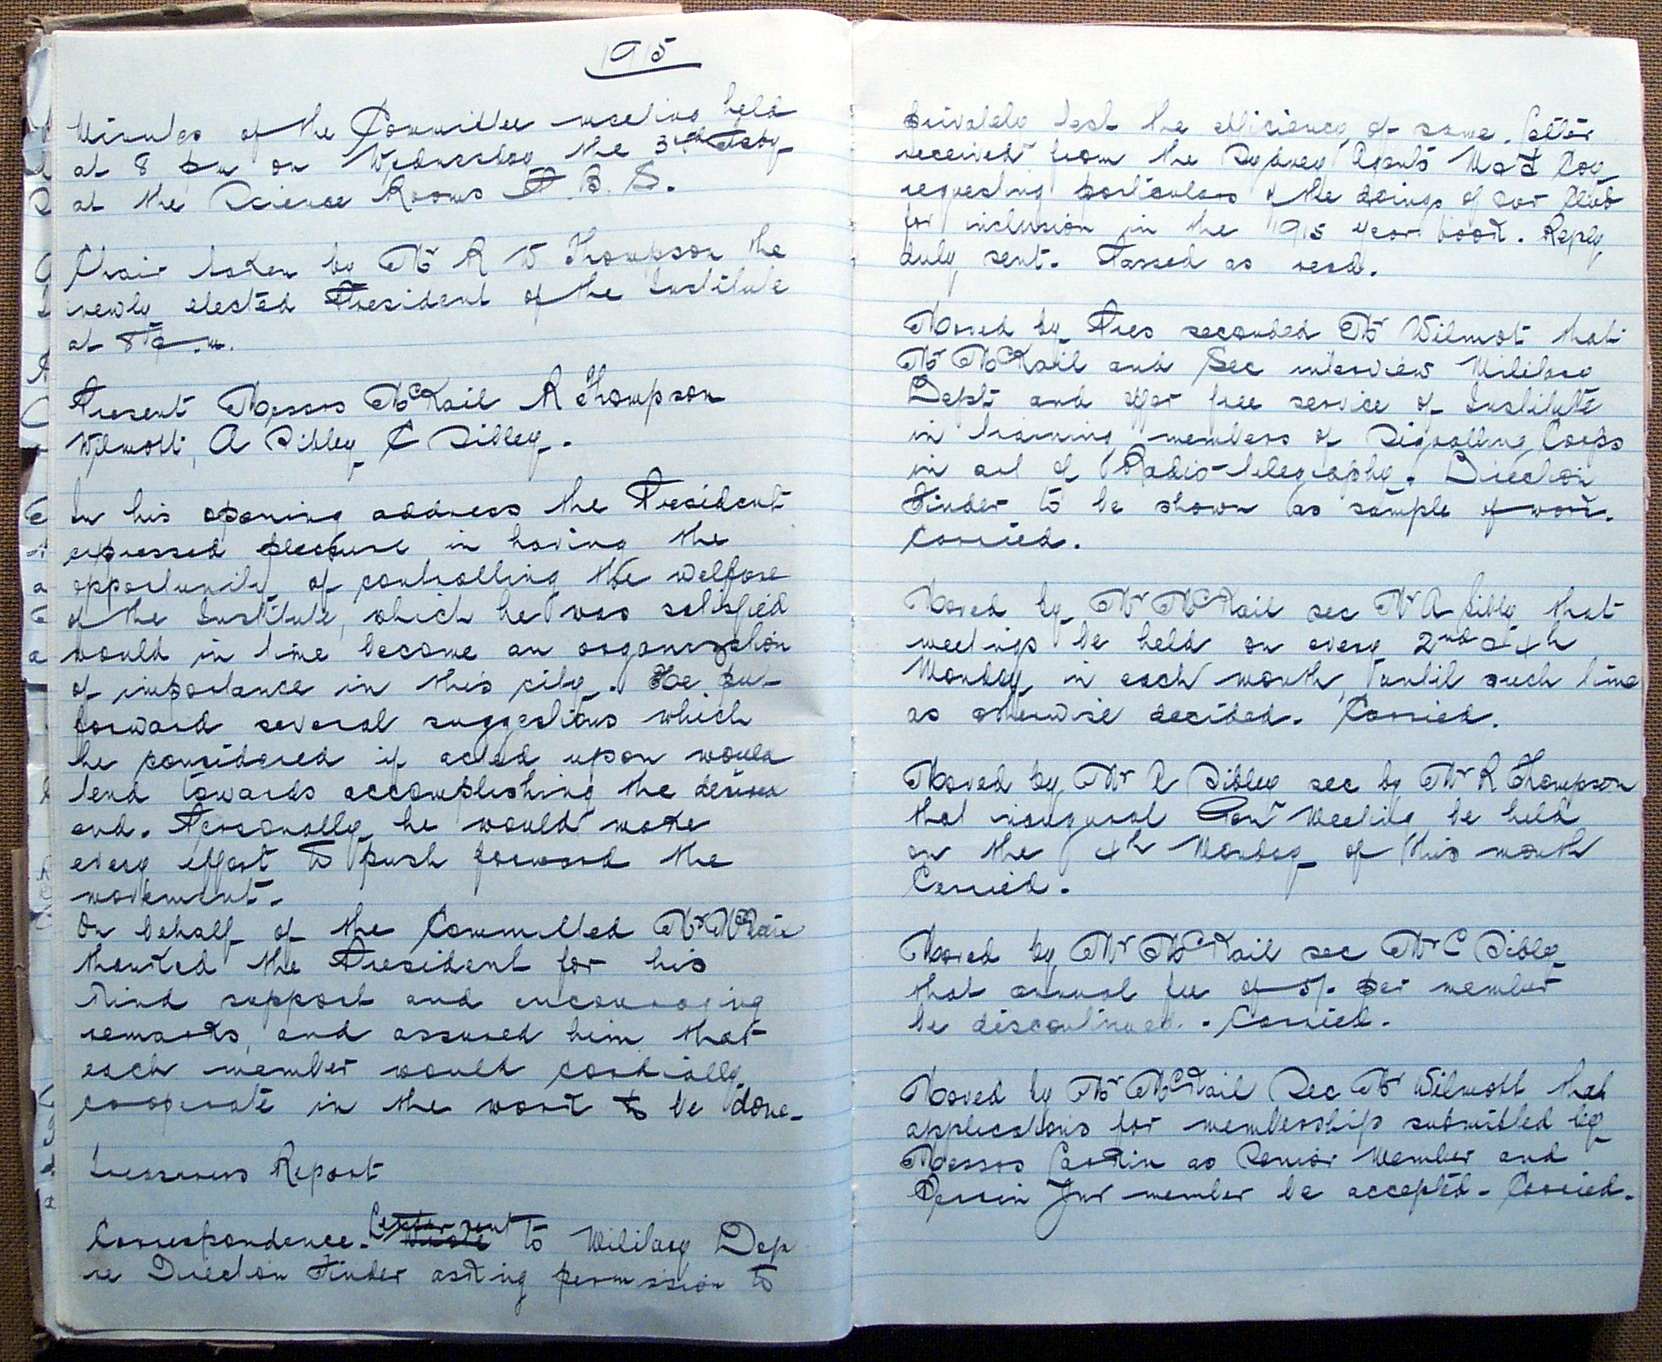 1915
Minutes of the Committee meeting held
at 8 pm on Wednesday the 3rd Feby
at the Science Rooms P. B. S.
Chair taken by Mr R V Thompson the
newly elected President of the Institute
at 8 p.m.
Present Messrs McKail R Thompson
Wilmott, A Sibley C Sibley.
In his opening address the President
expressed pleasure in having the
opportunity of controlling the welfare
of the Institute, which he was satisfied
would in time become an organization
of importance in this city. He put
forward several suggestions which
he considered if acted upon would
tend towards accomplishing the desired
end. Personally he would make
every effort to push forward the
movement.
On behalf of the Committee Mr McKail
thanked the President for his
kind support and encouraging
remarks, and assured him that
each member would cordially
cooperate in the work to be done.
Treasurers Report
Correspondence. Letter sent to Military Dep
re Direction Finder asking permission to
privately test the efficiency of same. Letter
received from the Sydney Agents Mar Coy
requesting particulars of the doings of our Club
for inclusion in the 1915 year book. Reply
duly sent. Passed as read.
Moved by Pres seconded Mr Wilmot that
Mr McKail and Sec interview Military
Dept and offer free service of Institute
in training members of Signalling Corps
in art of Radio-telegraphy. Direction
Finder to be shown as sample of work.
Carried.
Moved by Mr McKail sec Mr A Sibly that
meetings be held on every 2nd & 4th
Monday in each month, until such time
as otherwise decided. Carried.
Moved by Mr A Sibley sec by Mr R Thompson
that inaugural Genl Meeting be held
on the 4th Monday of this month
Carried.
Moved by Mr McKail sec Mr C Sibley
that annual fee of 5/- per member
be discontinued. Carried.
Moved by Mr McKail Sec Mr Wilmott that
applications for membership submitted by
Messrs as Senior Member and
Jnr member be accepted. Carried.